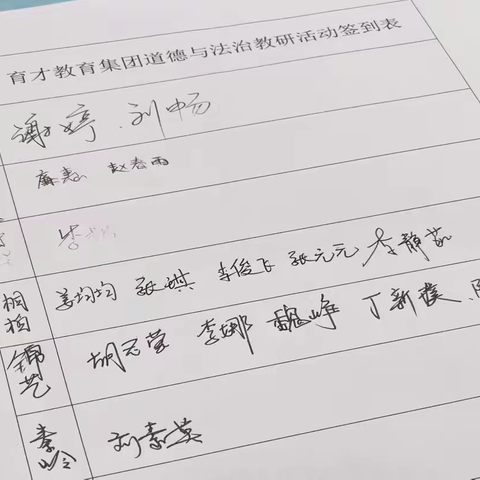 育才教育集团道德与法治教研活动签到表
谢婷 刘畅
廉惠 赵春雨
桐柏 姜均均 张琪 李俊飞 张元元 李静茹
锦艺 胡志莹 李娜 魏峰 丁新
秦岭 刘素英